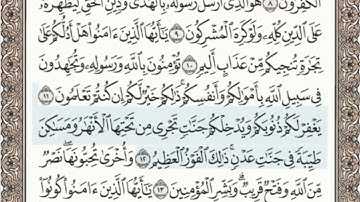 ٱلۡكَٰفِرُونَ ٨ هُوَ ٱلَّذِيٓ أَرۡسَلَ رَسُولَهُۥ بِٱلۡهُدَىٰ وَدِينِ ٱلۡحَقِّ لِيُظۡهِرَهُۥ
عَلَى ٱلدِّينِ كُلِّهِۦ وَلَوۡ كَرِهَ ٱلۡمُشۡرِكُونَ ٩ يَٰٓأَيُّهَا ٱلَّذِينَ ءَامَنُواْ هَلۡ أَدُلُّكُمۡ عَلَىٰ
تِجَٰرَةٖ تُنجِيكُم مِّنۡ عَذَابٍ أَلِيمٖ ١٠ تُؤۡمِنُونَ بِٱللَّهِ وَرَسُولِهِۦ وَتُجَٰهِدُونَ
فِي سَبِيلِ ٱللَّهِ بِأَمۡوَٰلِكُمۡ وَأَنفُسِكُمۡۚ ذَٰلِكُمۡ خَيۡرٞ لَّكُمۡ إِن كُنتُمۡ تَعۡلَمُونَ ١١
يَغۡفِرۡ لَكُمۡ ذُنُوبَكُمۡ وَيُدۡخِلۡكُمۡ جَنَّٰتٖ تَجۡرِي مِن تَحۡتِهَا ٱلۡأَنۡهَٰرُ وَمَسَٰكِنَ
طَيِّبَةٗ فِي جَنَّٰتِ عَدۡنٖۚ ذَٰلِكَ ٱلۡفَوۡزُ ٱلۡعَظِيمُ ١٢ وَأُخۡرَىٰ تُحِبُّونَهَاۖ نَصۡرٞ
مِّنَ ٱللَّهِ وَفَتۡحٞ قَرِيبٞۗ وَبَشِّرِ ٱلۡمُؤۡمِنِينَ ١٣ يَٰٓأَيُّهَا ٱلَّذِينَ ءَامَنُواْ كُونُوٓاْ